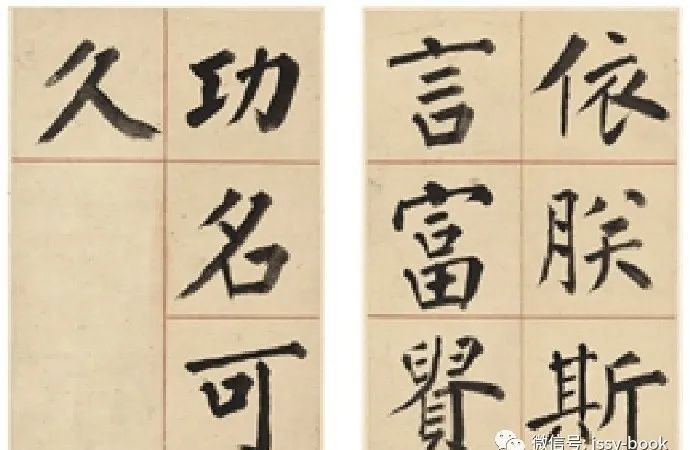 依朕斯
言富貴
功名可
久
微信号: